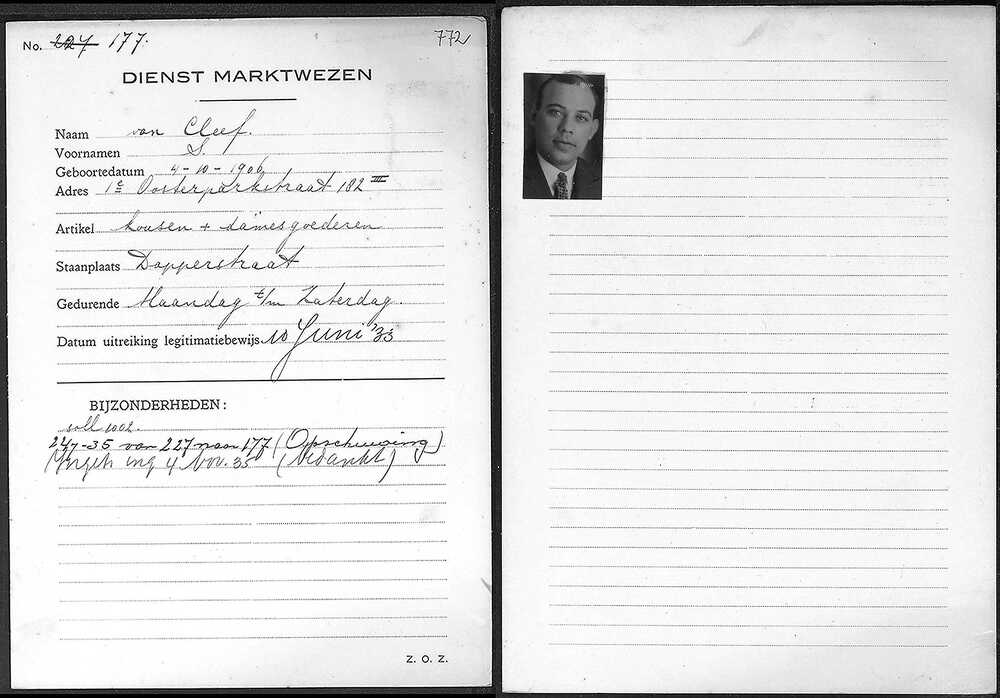 No. 227 177.
772
DIENST MARKTWEZEN
Naam van Cleef.
Voornamen S.
Geboortedatum 4-10-1906
Adres 1e Oosterparkstraat 182 III
Artikel kousen + damesgoederen
Staanplaats Dapperstraat
Gedurende Maandag t/m Zaterdag.
Datum uitreiking legitimatiebewijs 10 Juni '35
BIJZONDERHEDEN:
soll 1002.
24/7-35 van 227 naar 177 (Opschuiving)
ing 4 Nov. 35 (bedankt)
Z. O. Z.